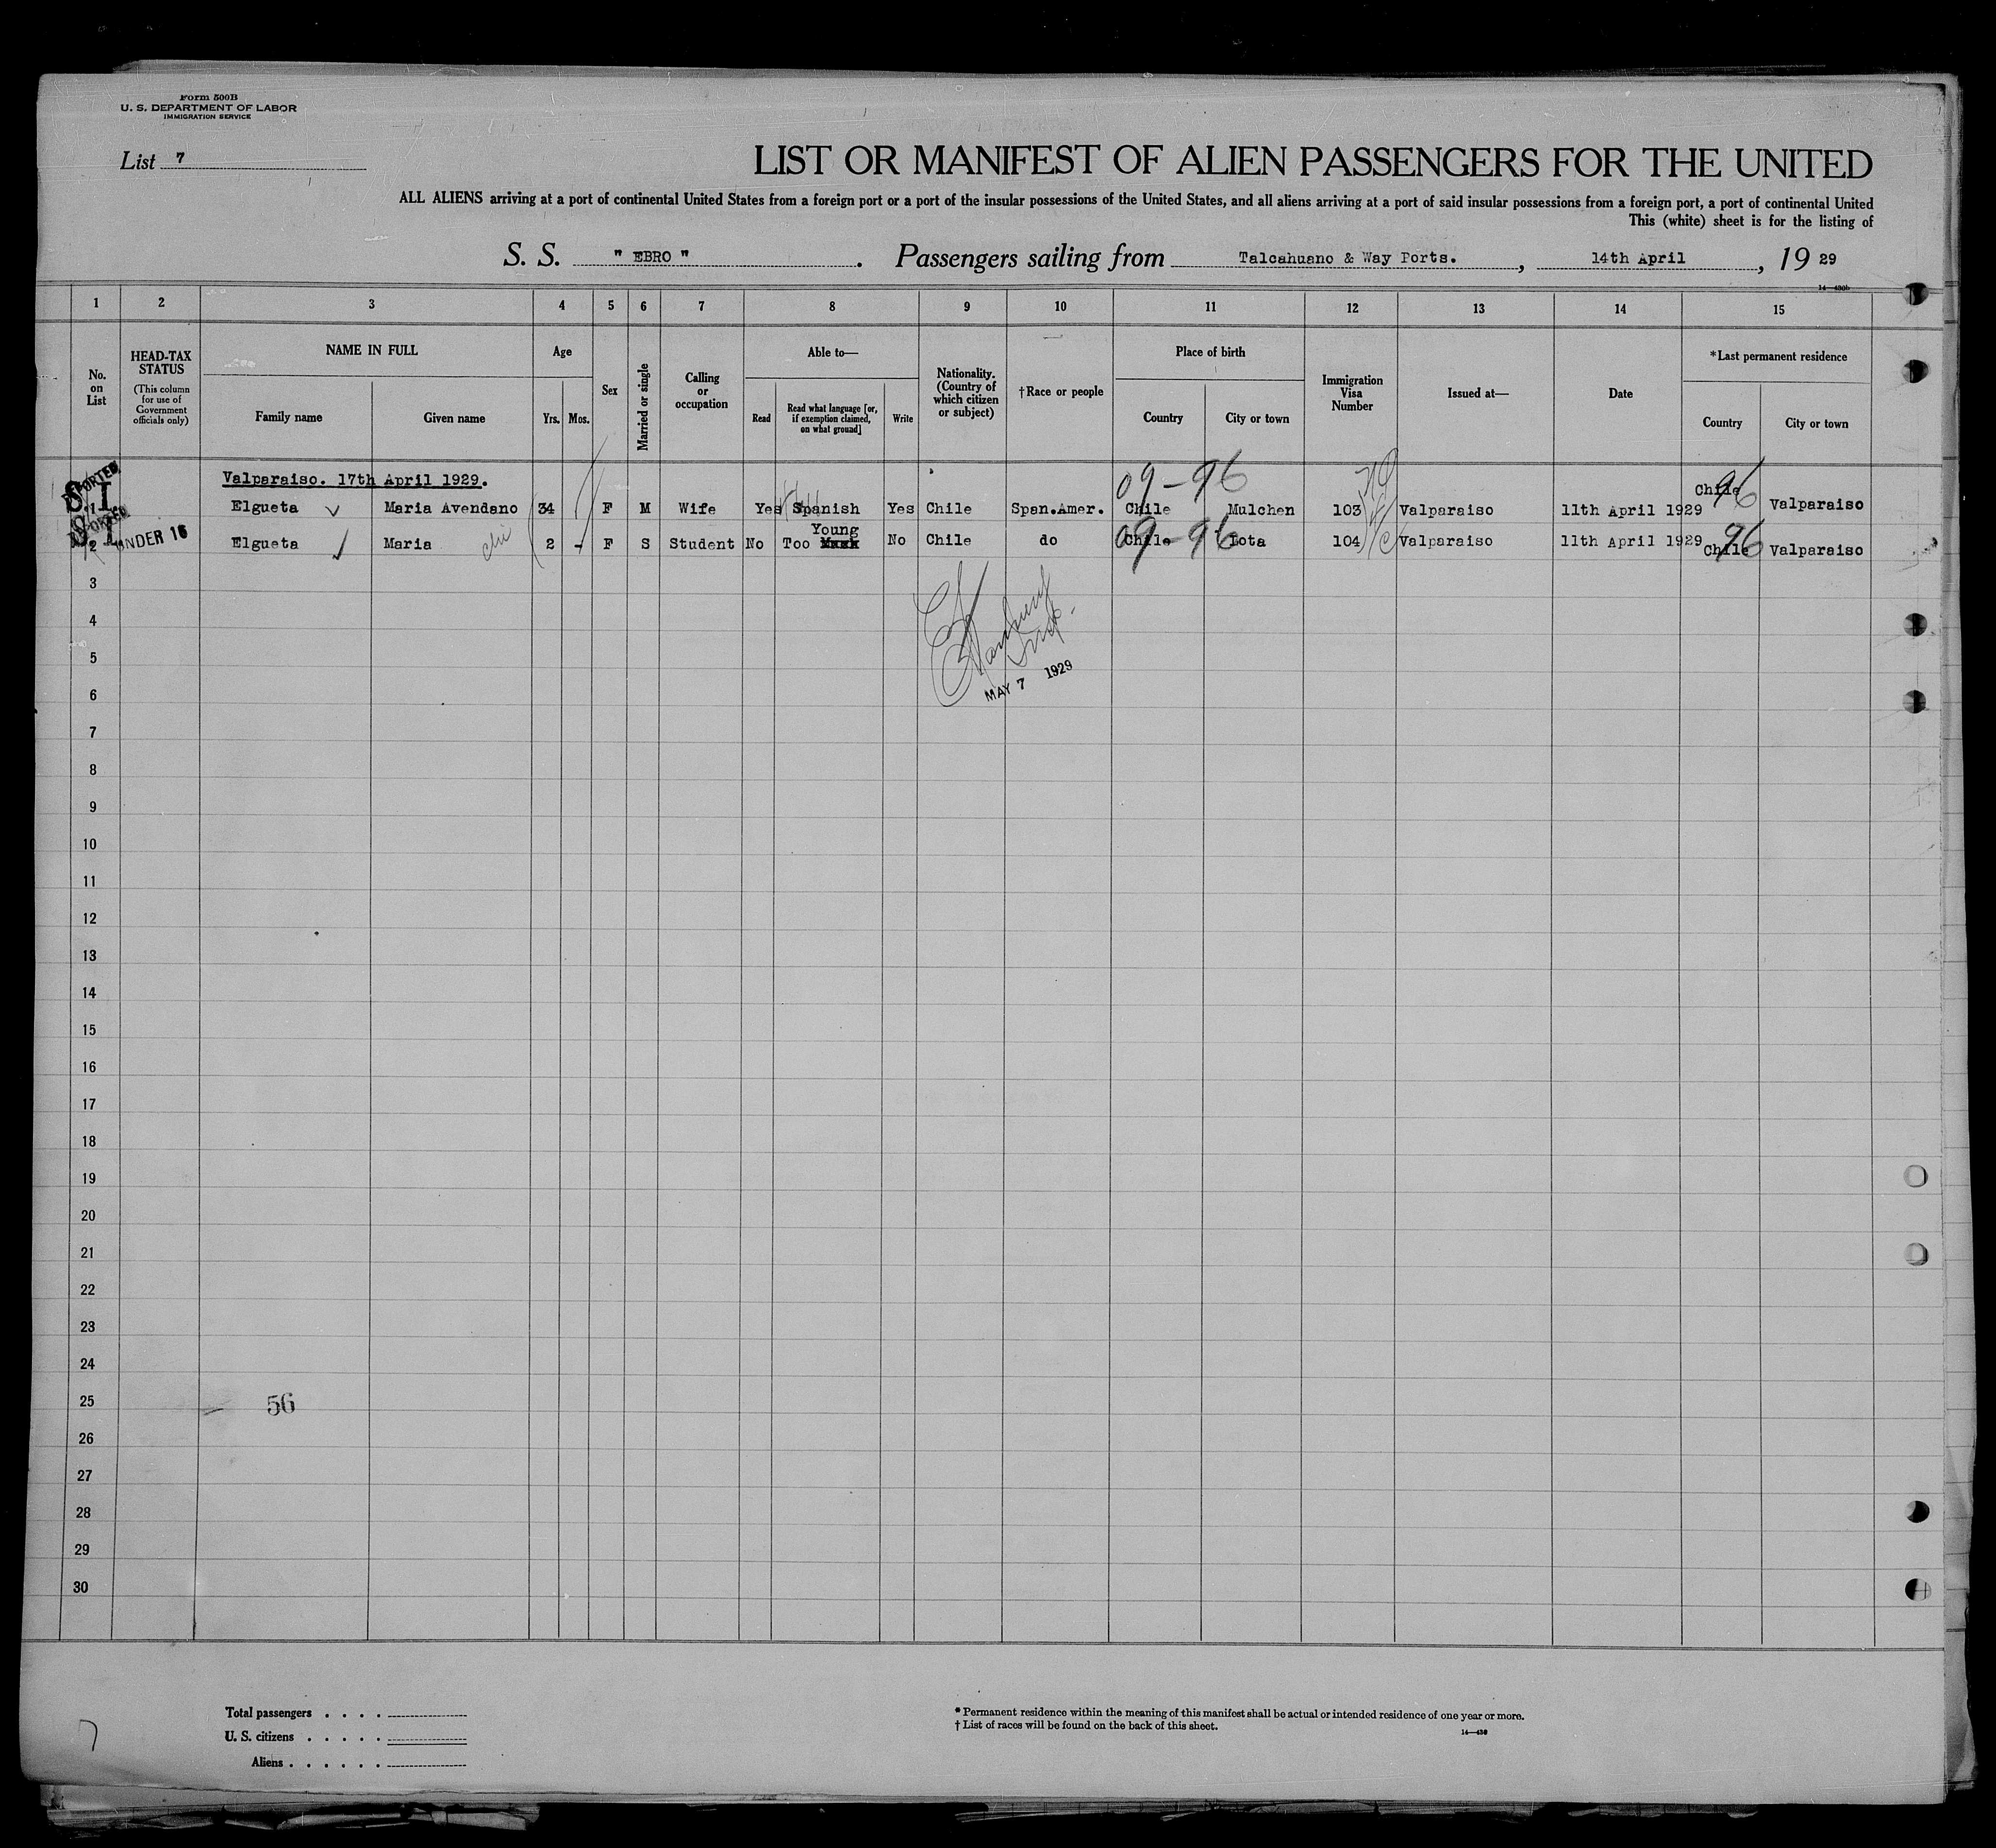 Form 500B
U. S. DEPARTMENT OF LABOR
IMMIGRATION SERVICE
List 7
LIST OR MANIFEST OF ALIEN PASSENGERS FOR THE UNITED
ALL ALIENS arriving at a port of continental United States from a foreign port or a port of the insular possessions of the United States, and all aliens arriving at a port of said insular possessions from a foreign port, a port of continental United
This (white) sheet is for the listing of
S. S. " EBRO ". Passengers sailing from Talcahuano & Way Ports., 14th April, 19 29
14—430b
1 2 3 4 5 6 7 8 9 10 11 12 13 14 15
No. on List
HEAD-TAX STATUS
(This column for use of Government officials only)
NAME IN FULL
Family name Given name
Age
Yrs. Mos.
Sex
Married or single
Calling or occupation
Able to—
Read Read what language [or, if exemption claimed, on what ground] Write
Nationality. (Country of which citizen or subject)
†Race or people
Place of birth
Country City or town
Immigration Visa Number
Issued at—
Date
*Last permanent residence
Country City or town
Valparaiso. 17th April 1929.
09-96
S.I.
1 Elgueta Maria Avendano 34 F M Wife Yes Spanish Yes Chile Span.Amer. Chile Mulchen 103 Valparaiso 11th April 1929 Chile 96 Valparaiso
Young
S.I. UNDER 16
2 Elgueta Maria 2 - F S Student No Too No Chile do Chile 09-96 Lota 104 Valparaiso 11th April 1929 Chile 96 Valparaiso
3
4
5
MAY 7 1929
6
7
8
9
10
11
12
13
14
15
16
17
18
19
20
21
22
23
24
25 56
26
27
28
29
30
Total passengers . . . .
U. S. citizens . . . . .
Aliens . . . . . .
* Permanent residence within the meaning of this manifest shall be actual or intended residence of one year or more.
† List of races will be found on the back of this sheet.
14—430
7